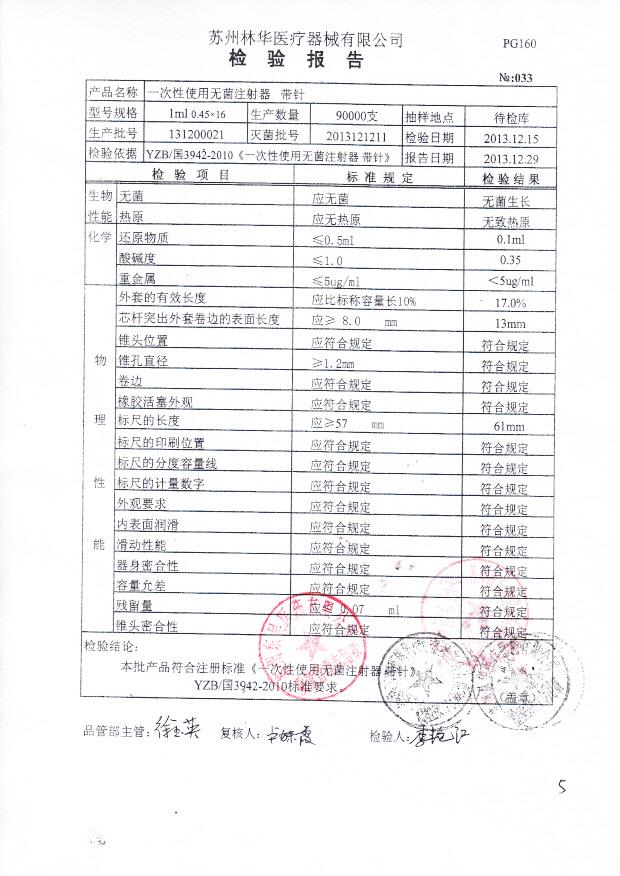 苏州林华医疗器械有限公司
PG160
检 验 报 告
№:033
产品名称 一次性使用无菌注射器 带针
型号规格 1ml 0.45×16 生产数量 90000支 抽样地点 待检库
生产批号 131200021 灭菌批号 2013121211 检验日期 2013.12.15
检验依据 YZB/国3942-2010《一次性使用无菌注射器 带针》 报告日期 2013.12.29
检 验 项 目 标 准 规 定 检 验 结 果
生物性能 无菌 应无菌 无菌生长
热原 应无热原 无致热原
化学 还原物质 ≤0.5ml 0.1ml
酸碱度 ≤1.0 0.35
重金属 ≤5ug/ml <5ug/ml
物理性能 外套的有效长度 应比标称容量长10% 17.0%
芯杆突出外套卷边的表面长度 应≥ 8.0 mm 13mm
锥头位置 应符合规定 符合规定
锥孔直径 ≥1.2mm 符合规定
卷边 应符合规定 符合规定
橡胶活塞外观 应符合规定 符合规定
标尺的长度 应≥57 mm 61mm
标尺的印刷位置 应符合规定 符合规定
标尺的分度容量线 应符合规定 符合规定
标尺的计量数字 应符合规定 符合规定
外观要求 应符合规定 符合规定
内表面润滑 应符合规定 符合规定
滑动性能 应符合规定 符合规定
器身密合性 应符合规定 符合规定
容量允差 应符合规定 符合规定
残留量 应 0.07 ml 符合规定
锥头密合性 应符合规定 符合规定
检验结论:
本批产品符合注册标准《一次性使用无菌注射器 带针》
YZB/国3942-2010标准要求。
(盖章)
品管部主管: 复核人: 检验人:
5